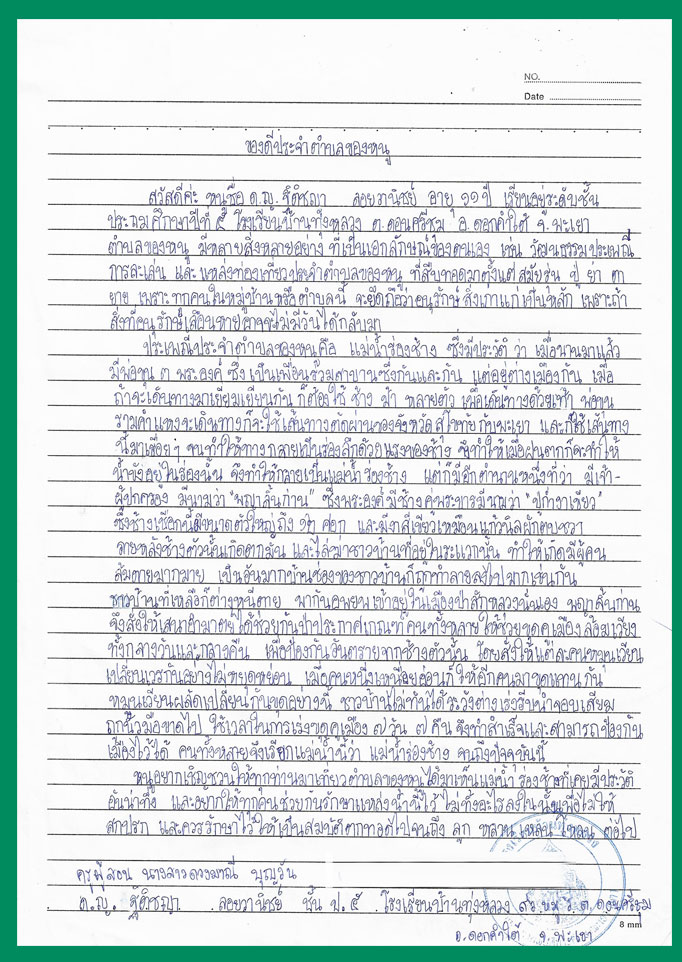 NO.
Date
ของดีประจำตำบลของหนู
สวัสดีค่ะ หนูชื่อ ด.ญ. ฐิติชญา ลอยวานิชย์ อายุ ๑๑ ปี เรียนอยู่ระดับชั้น
ประถมศึกษาปีที่ ๕ โรงเรียนบ้านทุ่งหลวง ต.ดอนศรีชุม อ.ดอกคำใต้ จ.พะเยา
ตำบลของหนู มีหลายสิ่งหลายอย่าง ที่เป็นเอกลักษณ์ของตนเอง เช่น วัฒนธรรมประเพณี
การละเล่น และ แหล่งท่องเที่ยวประจำตำบลของหนู ที่สืบทอดมาตั้งแต่ สมัยรุ่น ปู่ ย่า ตา
ยาย เพราะทุกคนในหมู่บ้านหรือตำบลนี้ จะยึดถือว่าอนุรักษ์สิ่งเก่าแก่เป็นหลัก เพราะถ้า
สิ่งที่อนุรักษ์เสื่อมหายอาจจะไม่มีวันได้กลับมา
ประเพณีประจำตำบลของหนูคือ แม่น้ำร่องช้าง ซึ่งมีประวัติว่า เมื่อนานมาแล้ว
มีพ่อขุน ๓ พระองค์ ซึ่งเป็นเพื่อนร่วมสาบานซึ่งกันและกัน แต่อยู่ต่างเมืองกัน เมื่อ
ถ้าจะเดินทางมาเยี่ยมเยียนกัน ก็ต้องใช้ ช้าง ม้า หลายตัว เพื่อเดินทางด้วยเท้า พ่อขุน
รามคำแหงจะเดินทางก็จะใช้เส้นทางตัดผ่านของจังหวัดสุโขทัยกับพะเยา และก็ใช้เส้นทาง
นี้มาเรื่อยๆ จนทำให้ทางกลายเป็นร่องลึกด้วยแรงของช้าง จึงทำให้เมื่อฝนตกก็จะทำให้
น้ำขังอยู่ในร่องนั้น จึงทำให้กลายเป็นแม่น้ำร่องช้าง แต่ก็มีอีกตำนานหนึ่งที่ว่า มีเจ้า-
ผู้ปกครอง มีนามว่า "พญาลั้นก่าน" ซึ่งพระองค์มีช้างคู่พระทารมีนามว่า "ปู่ก่ำงาเขียว"
ซึ่งช้างเชือกนี้มีขนาดตัวใหญ่ถึง ๑๒ ศอก และมีงาสีเขียวเหมือนแก้วนิลผักตบชวา
ภายหลังช้างตัวนั้นเกิดตกมัน และไล่ฆ่าชาวบ้านที่อยู่ในระแวกนั้น ทำให้เกิดมีผู้คน
ล้มตายมากมาย เป็นอันมากบ้านช่องของชาวบ้านก็ถูกทำลายลงไปมากเช่นกัน
ชาวบ้านที่เหลือก็ต่างหนีตาย พากันอพยพเข้าอยู่ในเมืองป่าสักหลวงนั่นเอง พญาลั้นก่าน
จึงสั่งให้เสนาอำมาตย์ได้ช่วยกันป่าประกาศเกณฑ์คนทั้งหลายให้ช่วยขุดคูเมืองล้อมเวียง
ทั้งกลางวันและกลางคืน เมื่อป้องกันอันตรายจากช้างตัวนั้น โดยสั่งให้แต่ละคนหมุนเวียน
เปลี่ยนเวรกันอย่างไม่หยุดหย่อน เมื่อคนหนึ่งเหนื่อยอ่อนก็ให้อีกคนมาขุดแทนกัน
หมุนเวียนผลัดเปลี่ยนกันขุดอย่างนี้ ชาวบ้านไม่ทันได้ระวังต่างเร่งรีบนำจอบเสียม
ถูกนิ้วมือขาดไป ใช้เวลาในการเร่งขุดคูเมือง ๗ วัน ๗ คืน จึงทำสำเร็จและสามารถป้องกัน
เมืองไว้ได้ คนทั้งหลายจึงเรียกแม่น้ำนี้ว่า แม่น้ำร่องช้าง จนถึงปัจจุบันนี้
หนูอยากเชิญชวนให้ทุกท่านมาเที่ยวตำบลของหนูได้มาเห็นแม่น้ำร่องช้างที่เคยมีประวัติ
อันน่าทึ่ง และอยากให้ทุกคนช่วยกันรักษาแหล่งน้ำนี้ไว้ ไม่ทิ้งอะไรลงในนั้นเพื่อไม่ให้
สกปรก และควรรักษาไว้ให้เป็นสมบัติตกทอดไปจนถึง ลูก หลาน เหลน โหลน ต่อไป
ครูผู้สอน นางสาวดวงมาณี บุญวัน
ด.ญ. ฐิติชญา ลอยวานิชย์ ชั้น ป.๕ โรงเรียนบ้านทุ่งหลวง ต.ดอนศรีชุม
อ.ดอกคำใต้ จ.พะเยา
8 mm